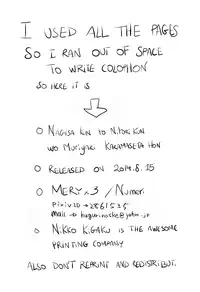 I USED ALL THE PAGES
SO I RAN OUT OF SPACE
TO WRITE COLOPHON
SO HERE IT IS
○ NAGISA KUN TO NITORI KUN
WO MURIYARI KARAMASETA HON
○ RELEASED ON 2014.8.15
○ MERY×3 / Numeri
PIXIV ID → 2861535
MAIL →
○ NIKKO KIGAKU IS THE AWESOME
PRINTING COMPANY
ALSO DON'T REPRINT AND REDISTRIBUT.